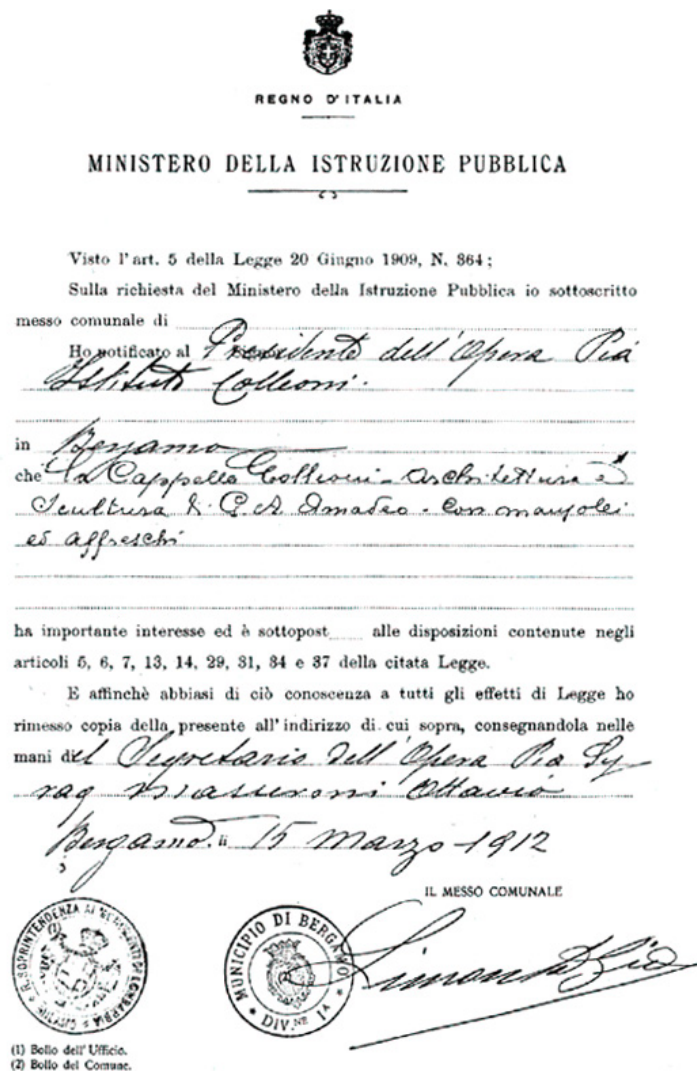 REGNO D'ITALIA
MINISTERO DELLA ISTRUZIONE PUBBLICA
Visto l'art. 5 della Legge 20 Giugno 1909, N. 364;
Sulla richiesta del Ministero della Istruzione Pubblica io sottoscritto
messo comunale di
Ho notificato al Presidente dell'Opera Pia
Istituto Colleoni.
in Bergamo
che la Cappella Colleoni - Architettura e
Scultura di G. A. Amadeo - con
ed affreschi
ha importante interesse ed è sottopost alle disposizioni contenute negli
articoli 5, 6, 7, 13, 14, 29, 31, 34 e 37 della citata Legge.
E affinchè abbiasi di ciò conoscenza a tutti gli effetti di Legge ho
rimesso copia della presente all'indirizzo di cui sopra, consegnandola nelle
mani del Segretario dell'Opera Pia
rag Masseroni Ottavio
Bergamo. li 15 Marzo 1912
IL MESSO COMUNALE
R. SOPRINTENDENZA AI MONUMENTI DI LOMBARDIA
MUNICIPIO DI BERGAMO
DIV.NE 1A
(1) Bollo dell'Ufficio.
(2) Bollo del Comune.